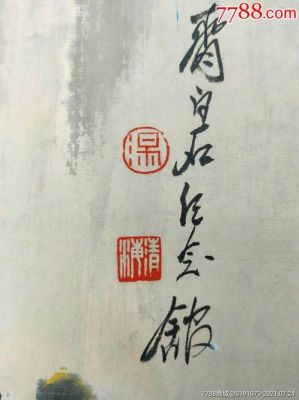 7788.com
齊白石纪念館
7788商城@8191071-2021.07.24